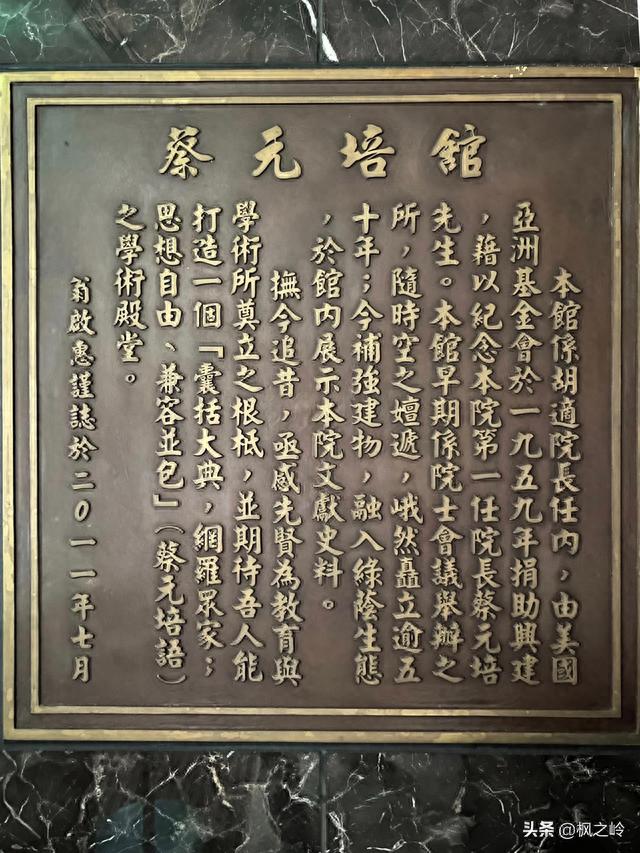 蔡元培館
本館係胡適院長任內，由美國
亞洲基金會於一九五九年捐助興建
，藉以紀念本院第一任院長蔡元培
先生。本館早期係院士會議舉辦之
所，隨時空之嬗遞，峨然矗立逾五
十年；今補強建物，融入綠蔭生態
，於館內展示本院文獻史料。
撫今追昔，亟感先賢為教育與
學術所奠立之根柢，並期待吾人能
打造一個「囊括大典，網羅眾家；
思想自由、兼容並包」（蔡元培語）
之學術殿堂。
翁啟惠謹誌於二〇一一年七月
头条 @枫之岭